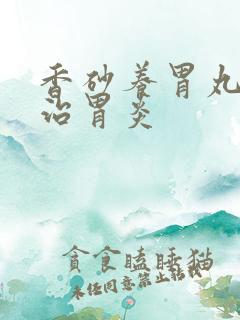 香砂养胃丸
治胃炎
贪食瞌睡猫
未经同意禁止转载